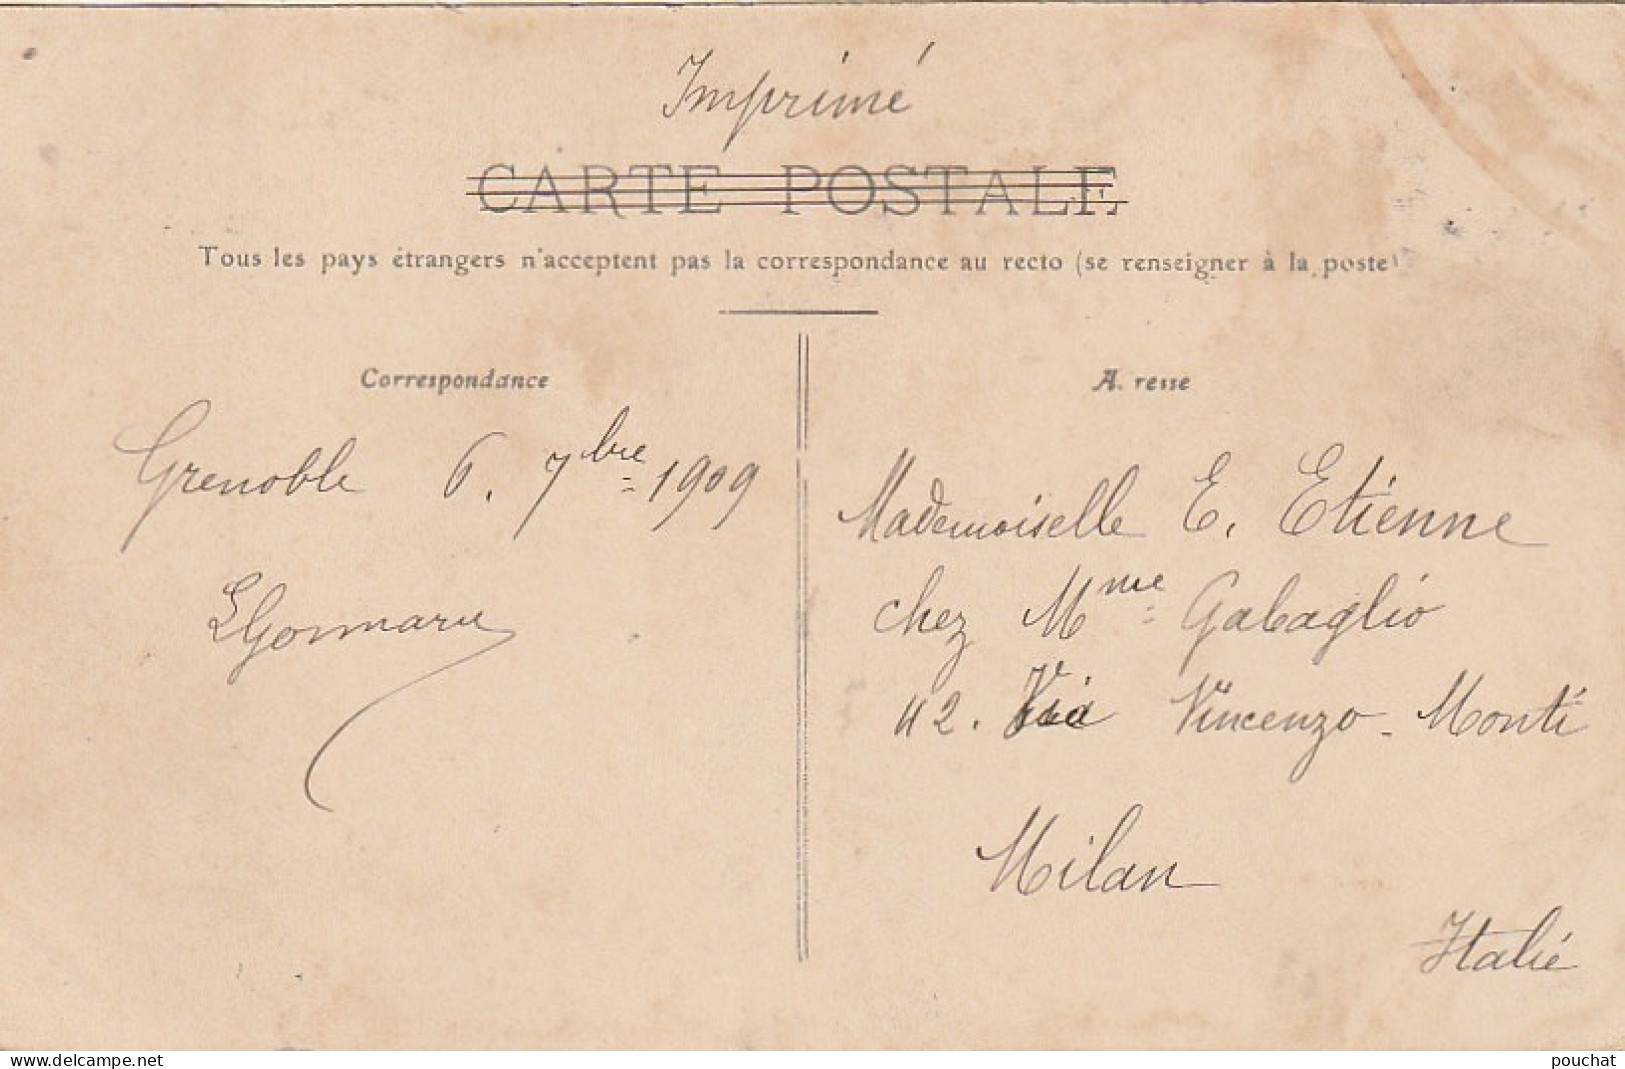 Imprimé
CARTE POSTALE
Tous les pays étrangers n'acceptent pas la correspondance au recto (se renseigner à la poste)
Correspondance
Grenoble 6. 7bre 1909
A. resse
Mademoiselle E. Etienne
chez Mme Gabaglio
42. Via Vincenzo - Monti
Milan
Italie
www.delcampe.net
pouchat